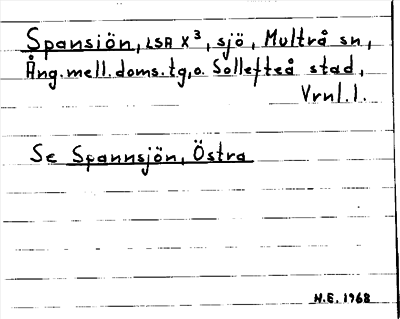 Spansjön, LSA X³, sjö, Multrå sn,
Ång.mell.doms.tg,o. Sollefteå stad,
Vrnl.l.
Se Spannsjön, Östra
N.E. 1968